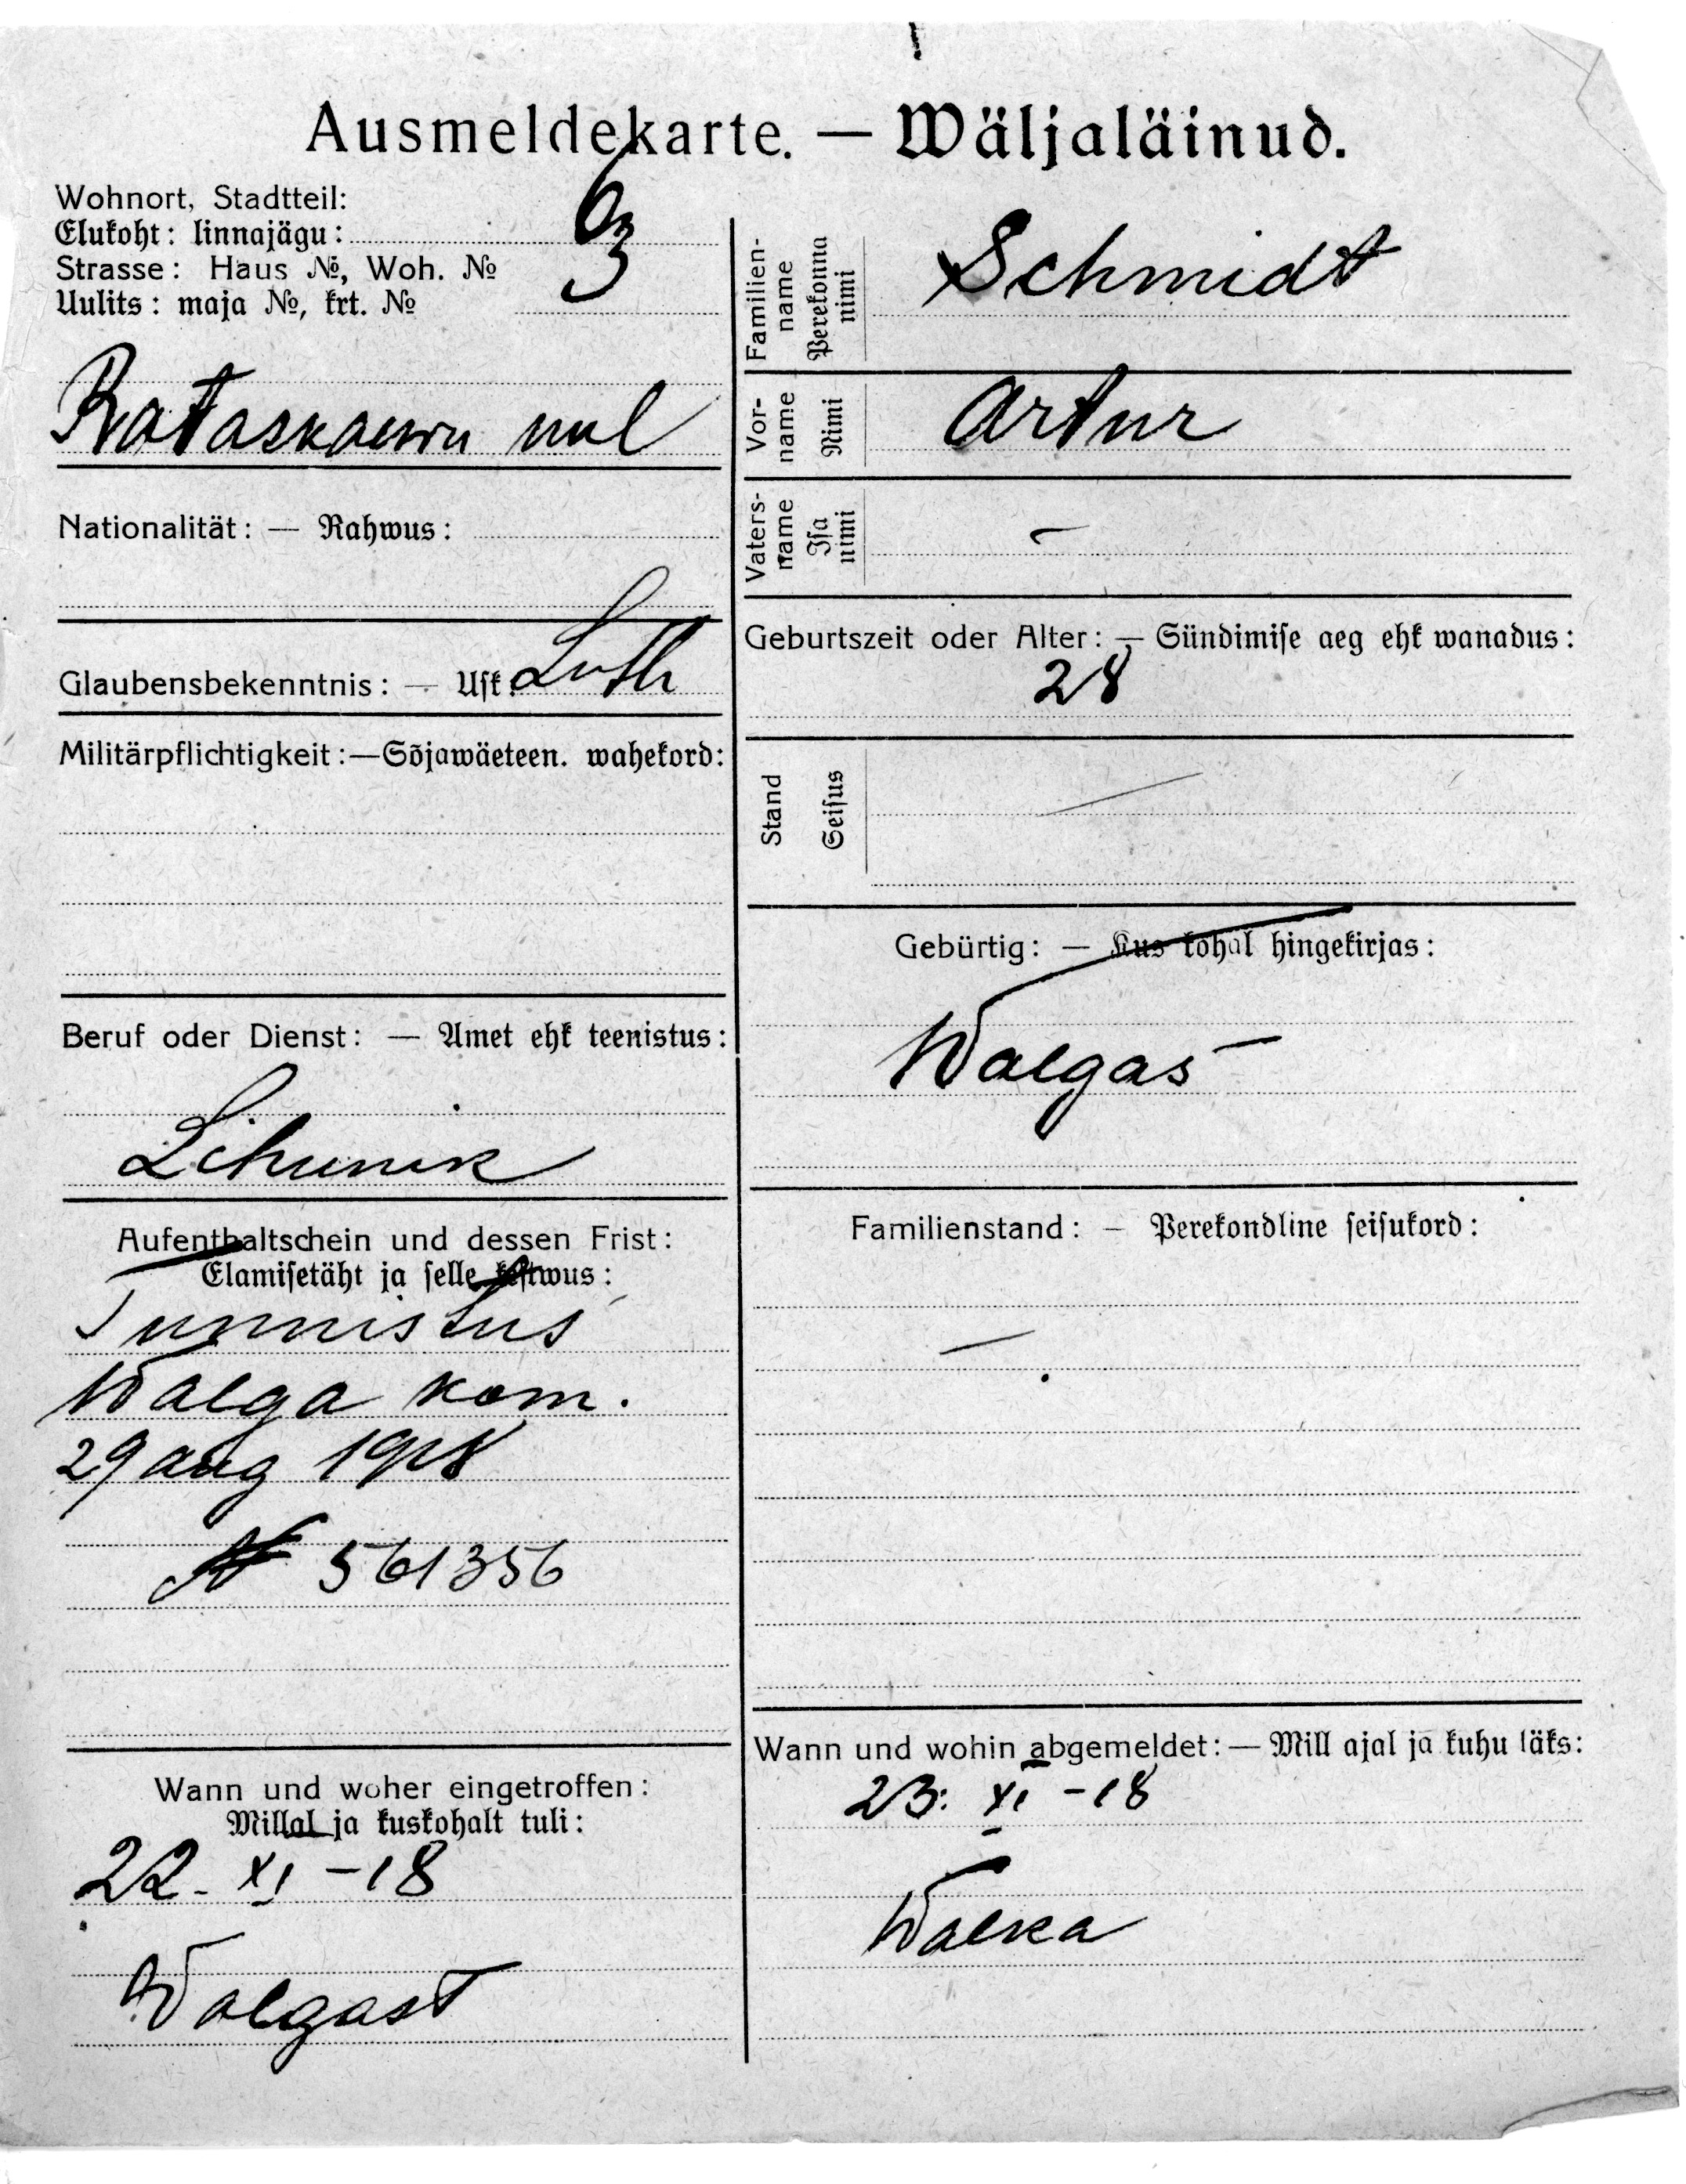 Ausmeldekarte. — Wäljaläinud.
Wohnort, Stadtteil:
Elukoht: linnajägu:
6
Strasse: Haus №, Woh. №
3
Uulits: maja №, krt. №
Rataskaewu uul
Nationalität: — Rahwus:
Glaubensbekenntnis: — Usk: Luth
Militärpflichtigkeit:—Sõjawäeteen. wahekord:
Beruf oder Dienst: — Amet ehk teenistus:
Lihunik
Aufenthaltschein und dessen Frist:
Elamisetäht ja selle kestwus:
Tunnistus
Walga kom.
29 aug 1918
№ 561356
Wann und woher eingetroffen:
Millal ja kuskohalt tuli:
22. XI -18
Walgast
Familien-
name
Perekonna
nimi
Schmidt
Vor-
name
Nimi
Artur
Vaters-
name
Isa
nimi
—
Geburtszeit oder Alter: — Sündimise aeg ehk wanadus:
28
Stand
Seisus
—
Gebürtig: — Kus kohal hingekirjas:
Walgas
Familienstand: — Perekondline seisukord:
—
Wann und wohin abgemeldet: — Mill ajal ja kuhu läks:
23. XI -18
Walka